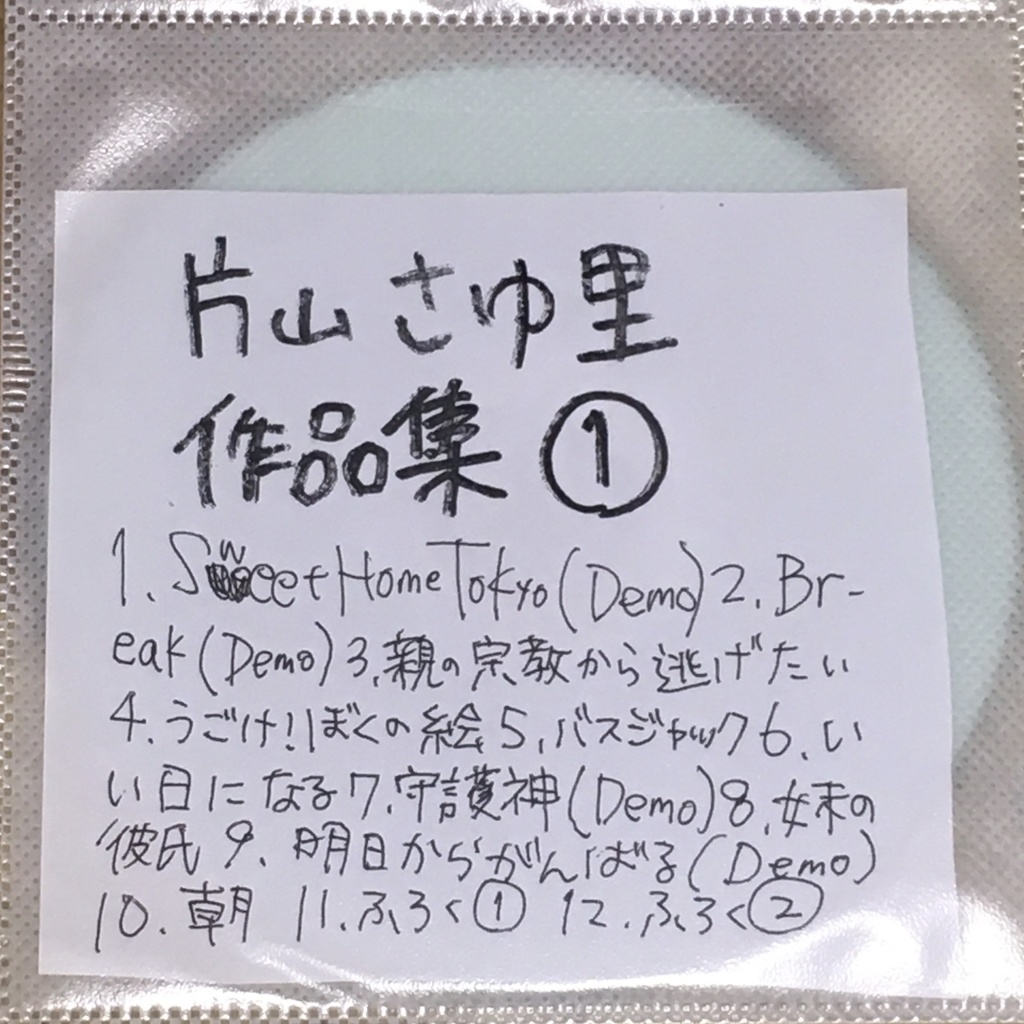 片山さゆ里
作品集①
1. Sweet Home Tokyo (Demo) 2. Br-
eak (Demo) 3. 親の宗教から逃げたい
4. うごけ!ぼくの絵 5. バスジャック 6. い
い日になる 7. 守護神 (Demo) 8. 妹の
彼氏 9. 明日からがんばる (Demo)
10. 朝 11. ふろく① 12. ふろく②